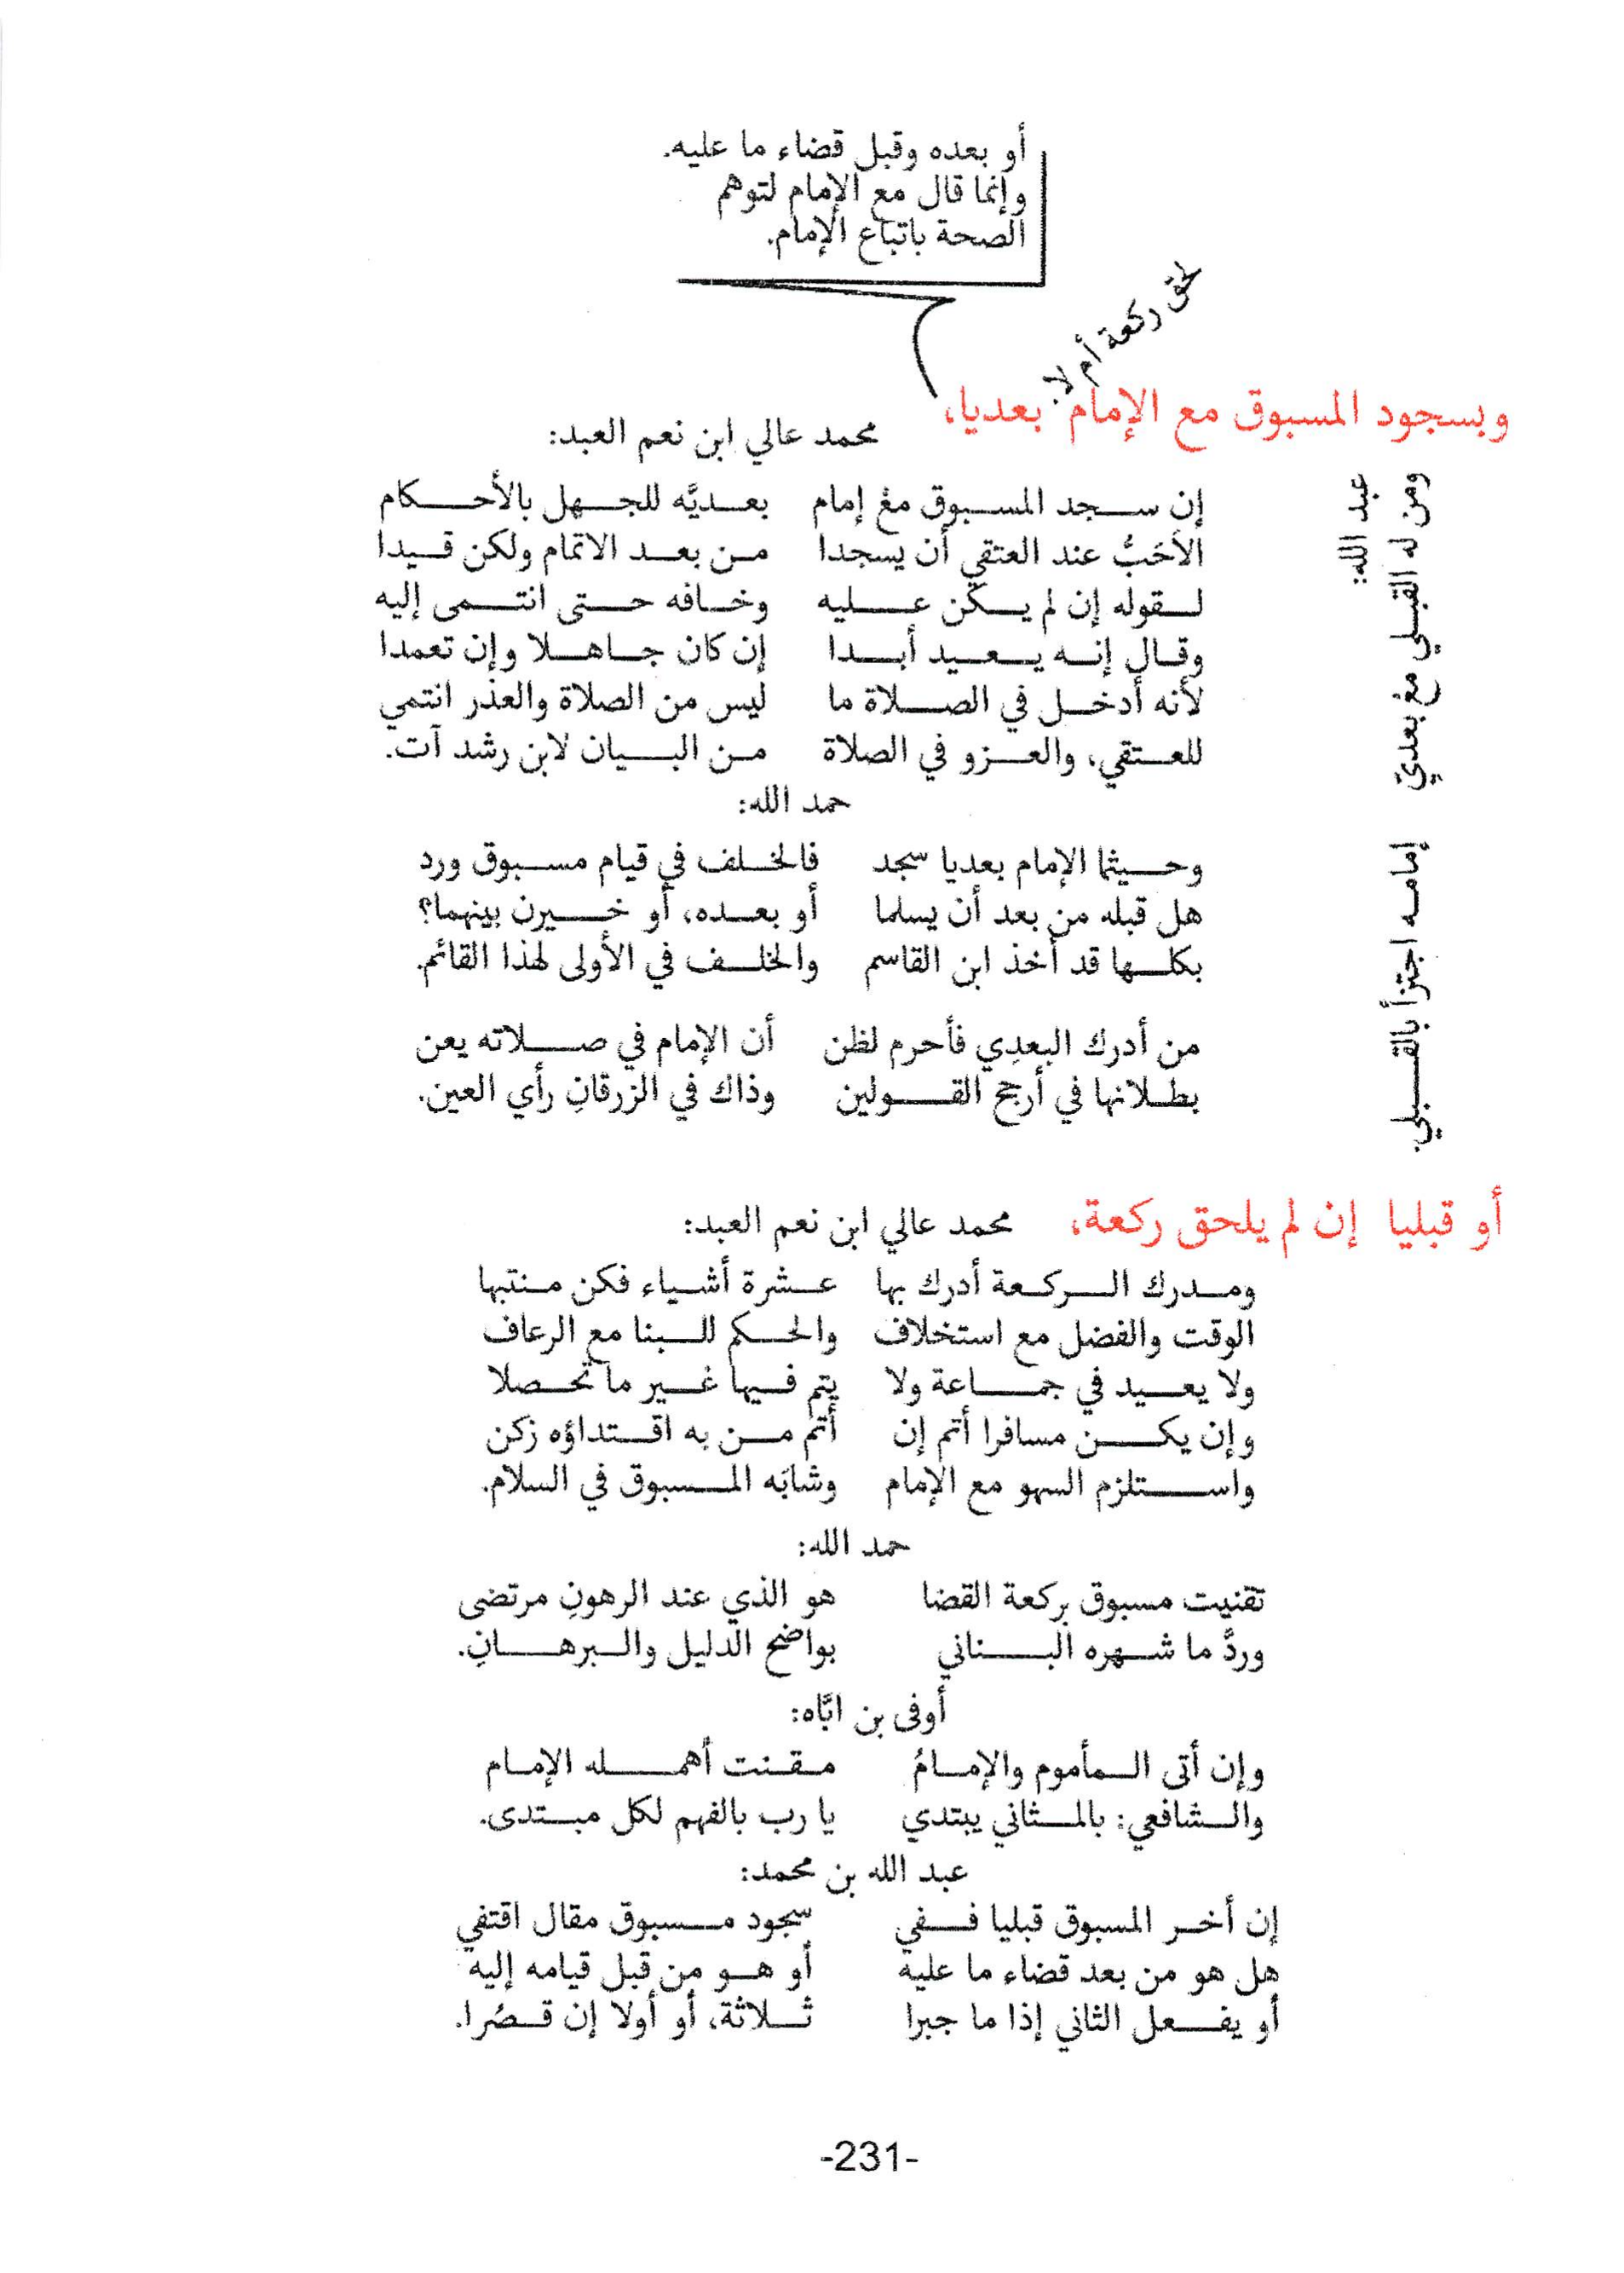 أو بعده وقبل قضاء ما عليه.
وإنما قال مع الإمام لتوهم
الصحة باتباع الإمام.
لحق ركعة أم لا.
وبسجود المسبوق مع الإمام بعديا،
محمد عالي ابن نعم العبد:
إن سجد المسبوق مغ إمام بعديَّه للجهل بالأحكام
الأحَبُّ عند العتقي أن يسجدا من بعد الاتمام ولكن قيدا
لقوله إن لم يكن عليه وخافه حتى انتمى إليه
وقال إنه يعيد أبدا إن كان جاهلا وإن تعمدا
لأنه أدخل في الصلاة ما ليس من الصلاة والعذر انتمي
للعتقي، والعزو في الصلاة من البيان لابن رشد آت.
حمد الله:
وحيثما الإمام بعديا سجد فالخلف في قيام مسبوق ورد
هل قبله من بعد أن يسلما أو بعده، أو خيرن بينهما؟
بكلها قد أخذ ابن القاسم والخلف في الأولى لهذا القائم.
من أدرك البعدِي فأحرم لظن أن الإمام في صلاته يعن
بطلانها في أرجح القولين وذاك في الزرقانِ رأي العين.
عبد الله:
ومن له القبلي مغ بعديّ إمامه اجتزأ بالقبلي.
أو قبليا إن لم يلحق ركعة،
محمد عالي ابن نعم العبد:
ومدرك الركعة أدرك بها عشرة أشياء فكن منتبها
الوقت والفضل مع استخلاف والحكم للبنا مع الرعاف
ولا يعيد في جماعة ولا يتم فيها غير ما تحصلا
وإن يكن مسافرا أتم إن أتم من به اقتداؤه زكن
واستلزم السهو مع الإمام وشابَه المسبوق في السلام.
حمد الله:
تقنيت مسبوق بركعة القضا هو الذي عند الرهونِ مرتضى
وردَّ ما شهره البناني بواضح الدليل والبرهانِ.
أوفى بن ابَّاه:
وإن أتى المأموم والإمامُ مقنت أهمله الإمام
والشافعي: بالمثاني يبتدي يا رب بالفهم لكل مبتدى.
عبد الله بن محمد:
إن أخر المسبوق قبليا ففي سجود مسبوق مقال اقتفي
هل هو من بعد قضاء ما عليه أو هو من قبل قيامه إليه
أو يفعل الثاني إذا ما جبرا ثلاثة، أو أولا إن قصُرا.
-231-